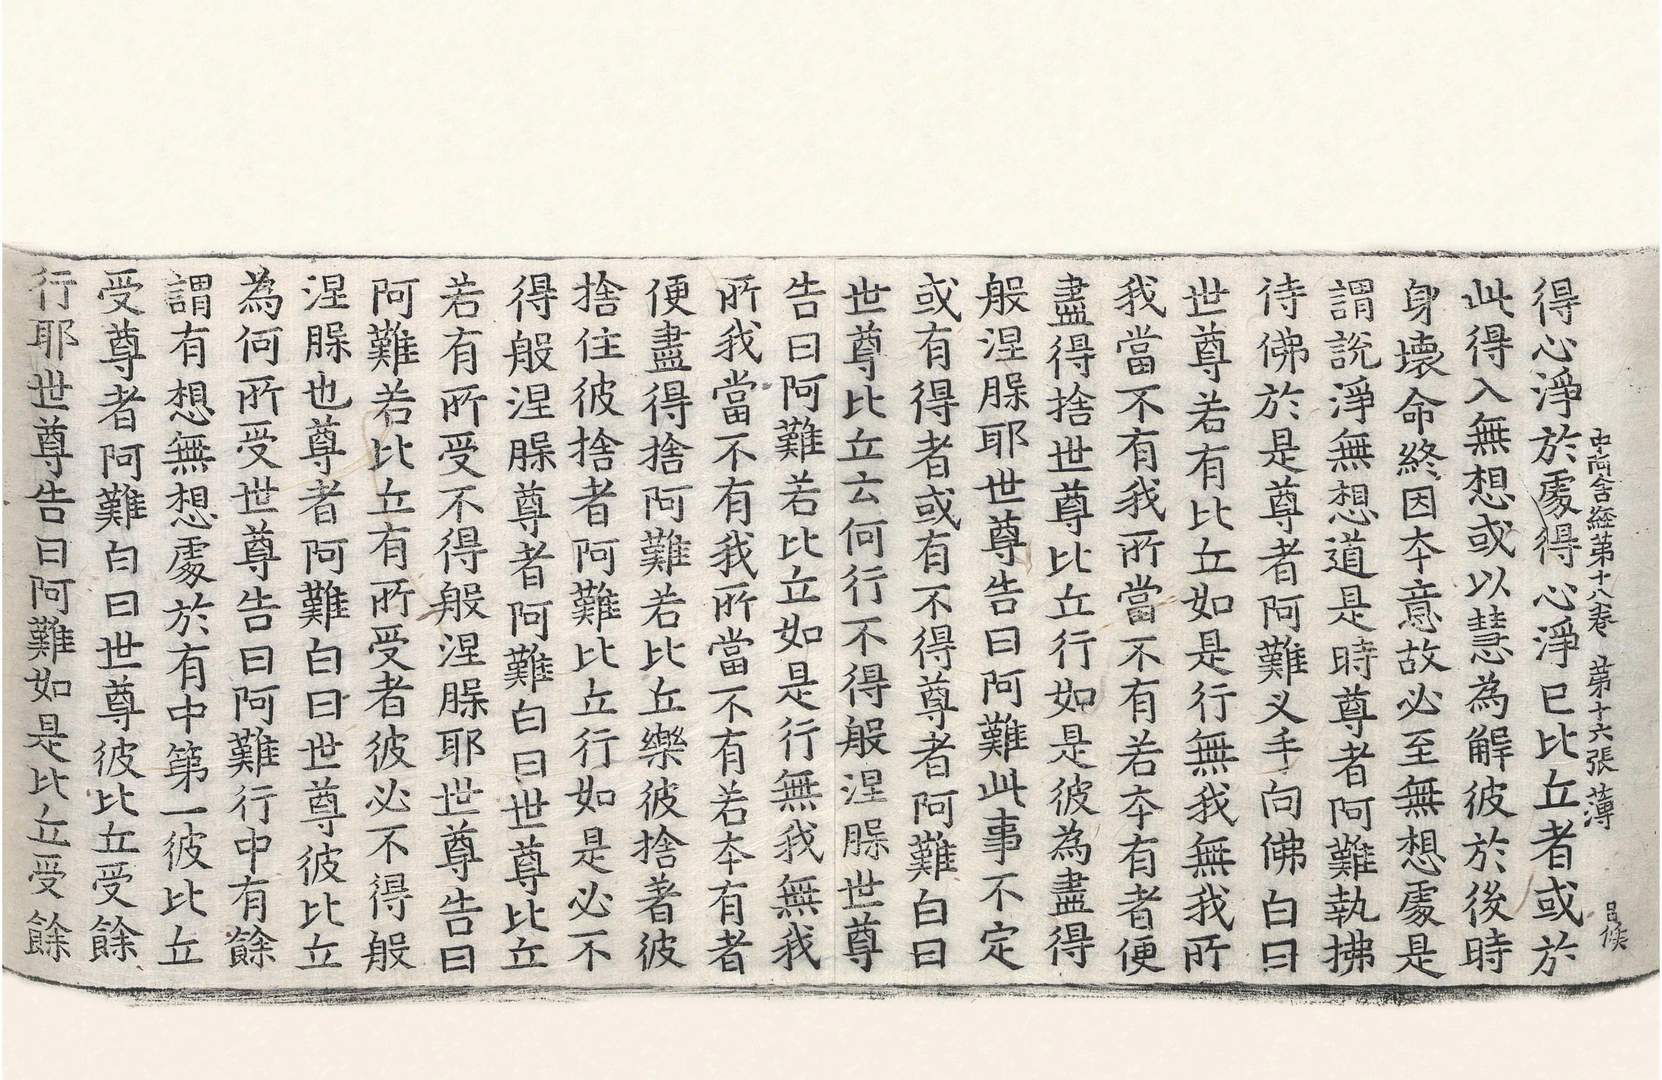 中阿含経第十八卷 第十六張 薄
得心淨於處得心淨已比丘者或於
此得入無想或以慧為解彼於後時
身壞命終因夲意故必至無想處是
謂說淨無想道是時尊者阿難執拂
待佛於是尊者阿難叉手向佛白曰
世尊若有比丘如是行無我無我所
我當不有我所當不有若夲有者便
盡得捨世尊比丘行如是彼為盡得
般涅槃耶世尊告曰阿難此事不定
或有得者或有不得尊者阿難白曰
世尊比丘云何行不得般涅槃世尊
告曰阿難若比丘如是行無我無我
所我當不有我所當不有若夲有者
便盡得捨阿難若比丘樂彼捨著彼
捨住彼捨者阿難比丘行如是必不
得般涅槃尊者阿難白曰世尊比丘
若有所受不得般涅槃耶世尊告曰
阿難若比丘有所受者彼必不得般
涅槃也尊者阿難白曰世尊彼比丘
為何所受世尊告曰阿難行中有餘
謂有想無想處於有中第一彼比丘
受尊者阿難白曰世尊彼比丘受餘
行耶世尊告曰阿難如是比丘受餘